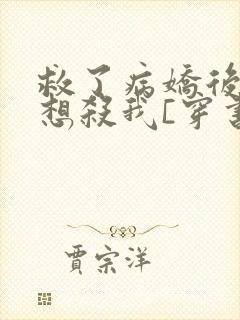 救了病嬌後
想殺我[穿書
賈宗洋